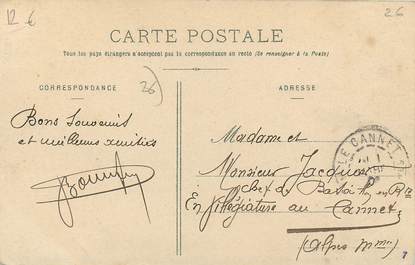 12 €
26
CARTE POSTALE
Tous les pays étrangers n'acceptent pas la correspondance au recto (Se renseigner à la Poste)
CORRESPONDANCE
26
ADRESSE
Bons Souvenirs
et meilleures amitiés
LE CANNET
Madame et
Monsieur Jacquot
Chef de
En Villégiature au Cannet
(Alpes Mmes)